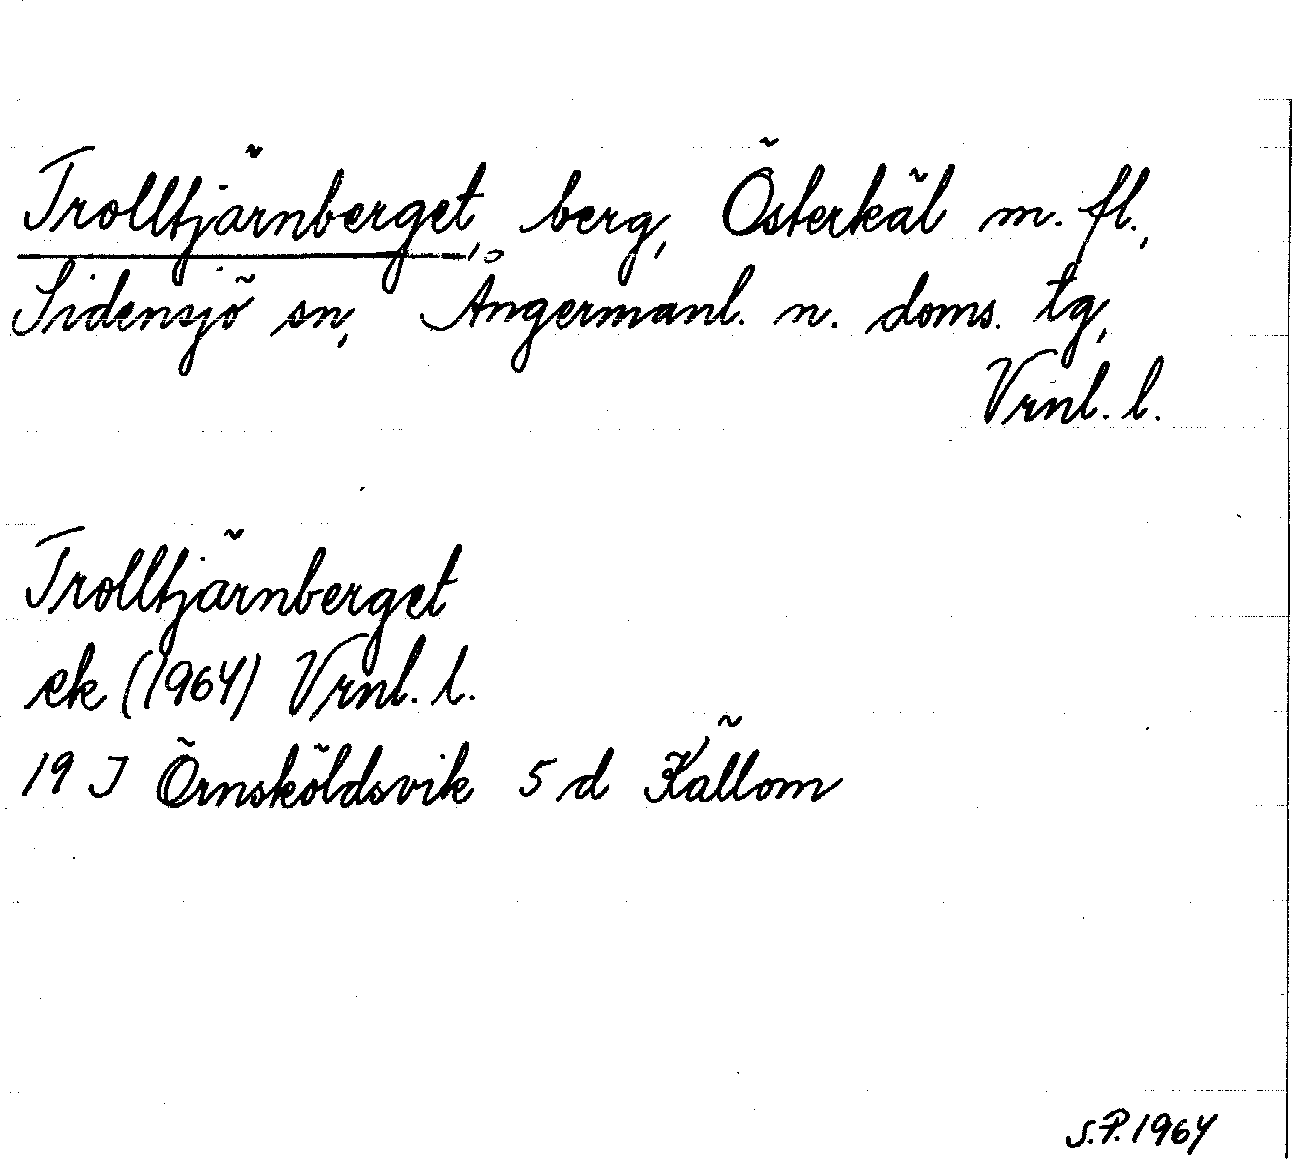 Trolltjärnberget, berg, Österkäl m. fl.,
Sidensjö sn, Ångermanl. n. doms. tg,
Vrnl. l.
Trolltjärnberget
ek (1964) Vrnl. l.
19 J Örnsköldsvik 5 d Källom
S.P. 1964